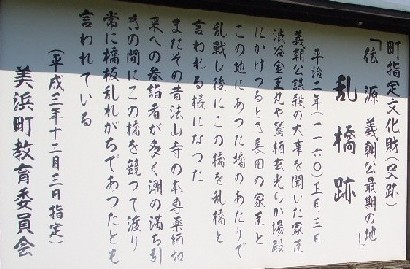 町指定文化財(史跡)
「伝 源 義朝公最期の地」
乱橋跡
平治二年(一一六〇)正月三日
義朝公謀殺の大事を聞いた家臣
渋谷金王丸や鷲栖玄光らが湯殿
にかけつけようと長田の家臣と
この地にあった橋のあたりで
乱戦し後にこの橋を乱橋と
言われる様になった
またその昔法山寺の本尊薬師如
来への参詣者が多く潮の満ち引
きの間にこの橋を競って渡り
常に橋板乱れがちであったとも
言われている
(平成三年十二月三日指定)
美浜町教育委員会